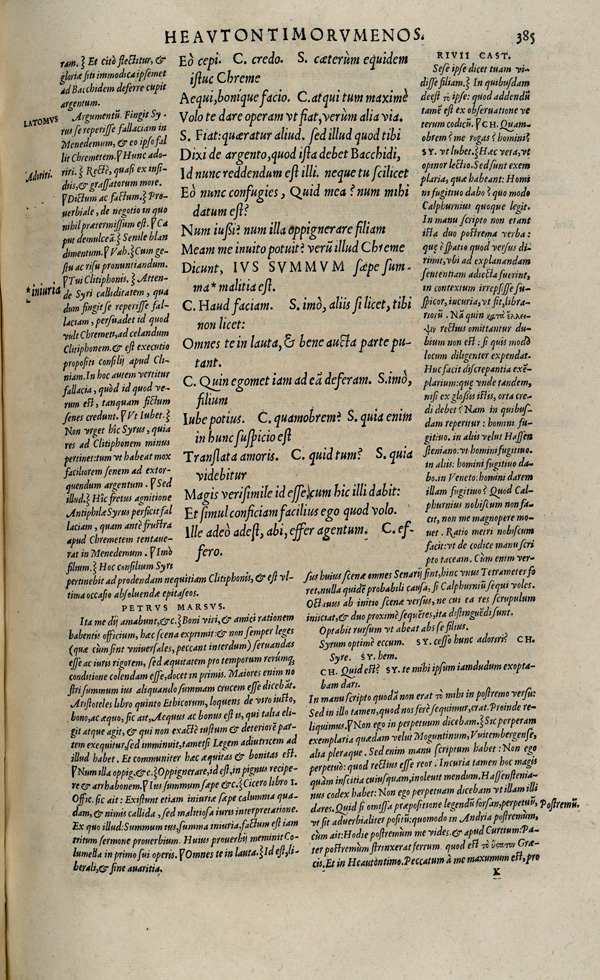 HEAVTONTIMORVMENOS.
385
ram.} Et citò flectitur, &
gloriæ siti immodica ipsemet
ad Bacchidem deferre cupit
argentum.
LATOMVS
Argumentū. Fingit Sy-
rus se reperisse fallaciam in
Menedemum, & eo ipso fal
lit Chremetem. ¶Hunc ado-
Adoriri.
riri.} Rectè, quasi ex insi-
diis, & grassatorum more.
¶Dictum ac factum.} Pro-
uerbiale, de negotio in quo
nihil prætermissum est. ¶Ca
put demulceā.} Senile blan
dimentum. ¶Vah.} Cum ge-
stu ac risu pronuntiandum.
¶Tui Clitiphonis.} Atten-
*iniuria
de Syri calliditatem, qua
dum fingit se reperisse fal-
laciam, persuadet id quod
vult Chremeti, ad celandum
Clitiphonem. & est executio
propositi consilij apud Cli-
niam. In hoc autem vertitur
fallacia, quòd id quod ve-
rum est, tanquam fictum
senes credunt. ¶Vt Iubet.}
Non vrget hîc Syrus, quia
res ad Clitiphonem minus
pertinet: tum vt habeat mox
faciliorem senem ad extor-
quendum argentum. ¶Sed
illud.} Hîc fretus agnitione
Antiphilæ Syrus perficit fal
laciam, quam antè frustra
apud Chremetem tentaue-
rat in Menedemum. ¶Imò
filium.} Hoc consilium Syri
pertinebit ad prodendam nequitiam Clitiphonis, & est vl-
tima occasio absoluendæ epitaseos.
PETRVS MARSVS.
Ita me dij amabunt, &c.} Boni viri, & amici rationem
habentis officium, hæc scena exprimit: & non semper leges
(quæ cùm sint vniuersales, peccant interdum) seruandas
esse ac iuris rigorem, sed æquitatem pro temporum rerumq́;
conditione colendam esse, docet in primis. Maiores enim no
stri summum ius aliquando summam crucem esse dicebāt.
Aristoteles libro quinto Ethicorum, loquens de viro iusto,
bono, ac æquo, sic ait, Æquus ac bonus est is, qui talia eli-
git atque agit, & qui non exactè iustum & deteriorē par-
tem exequitur, sed imminuit, tametsi Legem adiutricem ad
illud habet. Et communiter hæc æquitas & bonitas est.
¶Num illa oppig. &c.} Oppignerare, id est, in pignus recipe-
re & arrhabonem. ¶Ius summum sæpe &c.} Cicero libro 1.
Offic. sic ait: Existunt etiam iniuriæ sæpe calumnia qua-
dam, & nimis callida, sed malitiosa iuris interpretatione.
Ex quo illud: Summum ius, summa iniuria, factum est iam
tritum sermone prouerbium. Huius prouerbij meminit Co-
lumella in primo sui operis. ¶Omnes te in lauta.} Id est, li-
berali, & sine auaritia.
Eò cepi. C. credo. S. cæterùm equidem
istuc Chreme
Aequi, boníque facio. C. at qui tum maximè
Volo te dare operam vt fiat, verùm alia via.
S. Fiat: quæratur aliud. sed illud quod tibi
Dixi de argento, quod ista debet Bacchidi,
Id nunc reddendum est illi. neque tu scilicet
Eò nunc confugies, Quid mea? num mihi
datum est?
Num iussi? num illa oppignerare filiam
Meam me inuito potuit? verū illud Chreme
Dicunt, IVS SVMMVM sæpe sum-
ma* malitia est.
C. Haud faciam. S. imò, aliis si licet, tibi
non licet:
Omnes te in lauta, & bene aucta parte pu-
tant.
C. Quin egomet iam ad eā deferam. S. imò,
filium
Iube potius. C. quamobrem? S. quia enim
in hunc suspicio est
Translata amoris. C. quid tum? S. quia
videbitur
Magis verisimile id esse, cum hic illi dabit:
Et simul conficiam facilius ego quod volo.
Ille adeò adest, abi, effer agentum. C. ef-
fero.
RIVII CAST.
Sese ipse dicet tuam vi-
disse filiam.} In quibusdam
deest τὸ ipse: quod addendū
tamē est ex obseruatione ve
terum codicū. ¶CH. Quam-
obrem? me rogas? hominis?
SY. vt lubet.} Hæc vera, vt
opinor lectio. Sed sunt exem
plaria, quæ habeant: Homi
ni fugitiuo dabo? quo modo
Calphurnius quoque legit.
In manu scripto non erant
ista duo postrema verba:
quę & spatio quod versus di-
rimit, vbi ad explanandam
sententiam adiecta fuerint,
in contextum irrepsisse su-
spicor, incuria, vt fit, libra-
riorū. Nā quin
rectius omittantur du-
bium non est: si quis modò
locum diligenter expendat.
Huc facit discrepantia exē-
plarium: quę vnde tandem,
nisi ex glossis istis, orta cre-
di debet? Nam in quibus-
dam reperitur: homini fu-
gitiuo. in aliis velut Hassen
steniano: vt homini fugitiuo.
in aliis: homini fugitiuo da-
bo. in Veneto: homini darem
illam fugitiuo? Quod Cal-
phurnius nobiscum non fa-
cit, non me magnopere mo-
uet. Ratio metri nobiscum
facit: vt de codice manu scri
pto taceam. Cùm enim ver-
sus huius scenæ omnes Senarij sint, hinc vnus Tetrameter fo
ret, nulla quidē probabili causa, si Calphurniū sequi voles.
Octauus ab initio scenæ versus, ne cui ea res scrupulum
iniiciat, & duo proximè sequētes, ita distinguēdi sunt.
Optabit rursum vt abeat abs se filius.
Syrum optimè eccum. SY. cesso hunc adoriri? CH.
Syre. SY. hem.
CH. Quid est? SY. te mihi ipsum iamdudum exopta-
bam dari.
In manu scripto quodā non erat τὸ mihi in postremo versu:
Sed in illo tamen, quod nos ferè sequimur, erat. Proinde re-
liquimus. ¶Non ego in perpetuum dicebam.} Sic perperam
exemplaria quædam velut Moguntinum, Vuitembergense,
alia pleraque. Sed enim manu scriptum habet: Non ego
perpetuò: quod rectius esse reor. In curia tamen hoc magis
quàm inscitia cuiusquam, inoleuit mendum. Hassenstenia-
nus codex habet: Non ego perpetuam dicebam vt illam illi
dares. Quid si omissa præpositione legendū forsan, perpetuū,
Postremū.
vt sit aduerbialiter positū: quomodo in Andria postremùm,
cùm ait: Hodie postremùm me vides. & apud Curtium: Pa-
ter postremùm strinxerat ferrum quod est τὸ ὕστατον Græ-
cis. Et in Heautontimo. Peccatum à me maxumum est, pro
K